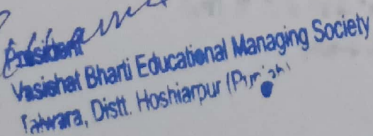 President
Vasishat Bharti Educational Managing Society
Talwara, Distt. Hoshiarpur (Punjab)